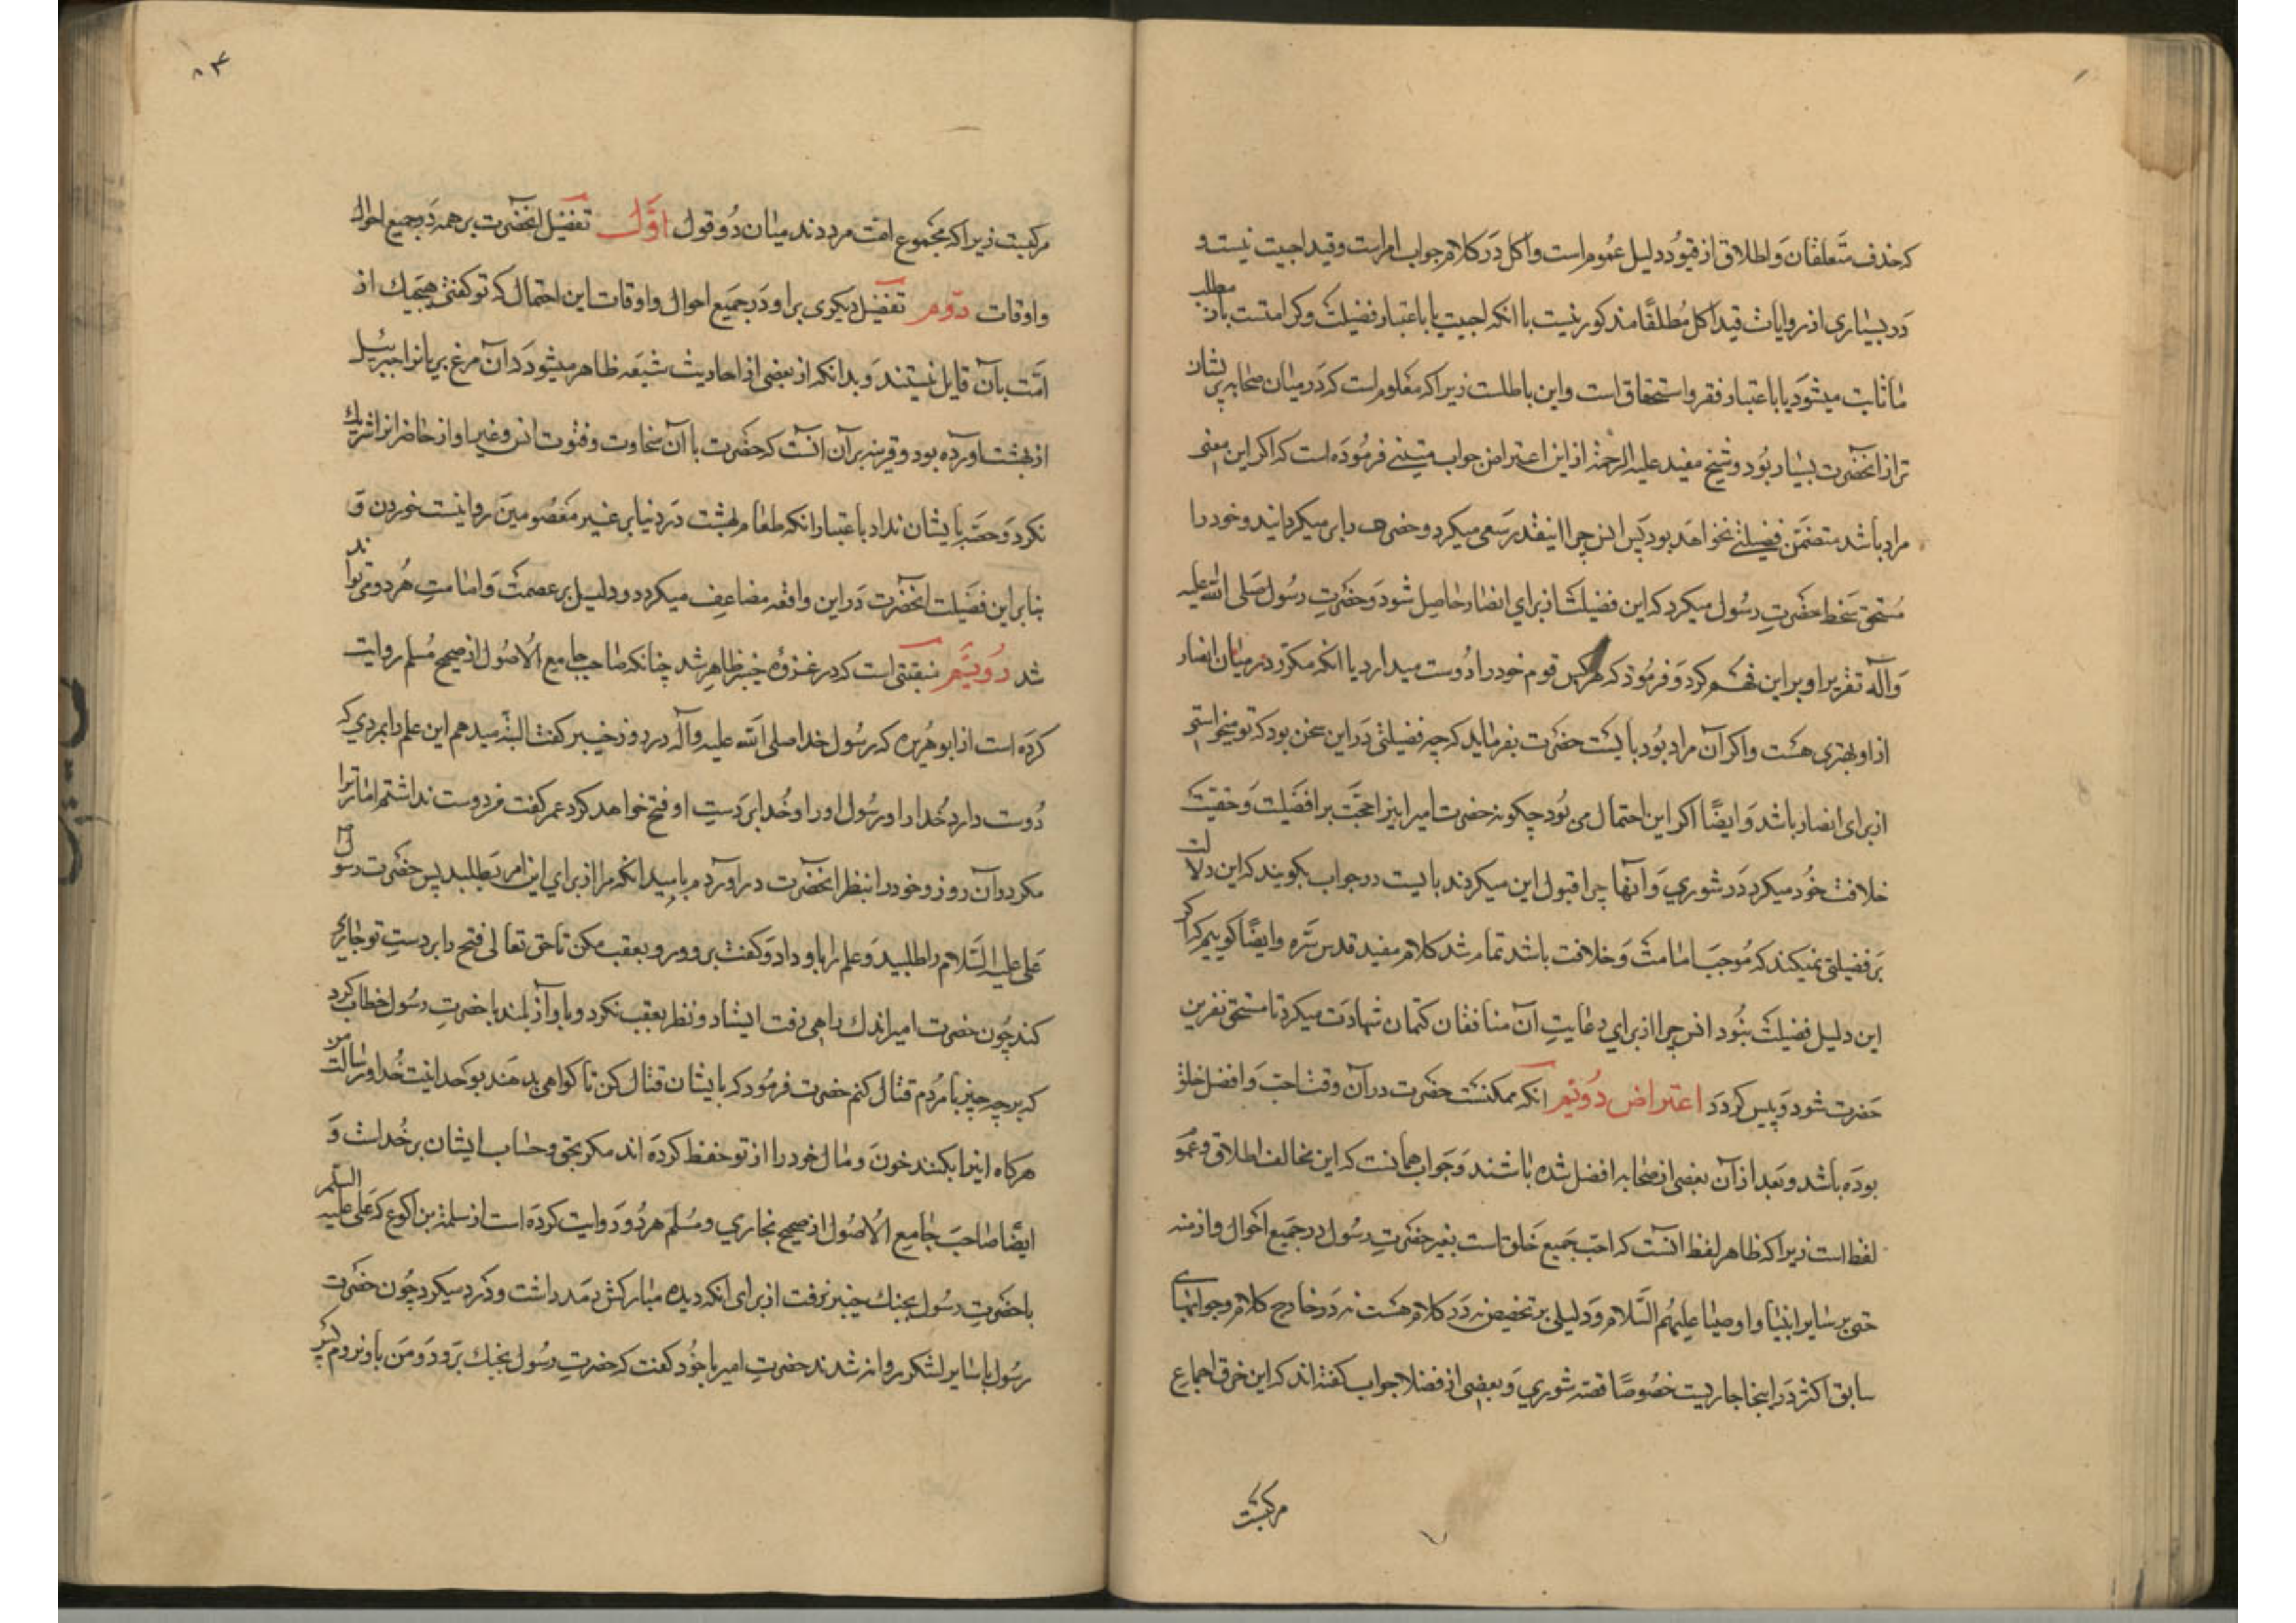 که حذف متعلقات و اطلاق از قیود دلیل عمومراست و اکل در کلام جواب امراست و قید احبیت نیست و
در بسیاری از روایات قید اکل مطلقا مذکور نیست با آنکه احبیت یا باعتبار فضیلت و کرامتست بآن مطلب
ما ثابت میشود یا باعتبار فقر و استحقاق است و این باطلست زیرا که معلوم است که در میان صحابه پریشان
تر از آنحضرت بسیار بود و شیخ مفید علیه الرحمة از این اعتراض جواب متینی فرموده است که اگر این معنی
مراد باشد متضمن فضیلتی نخواهد بود پس انس چرا اینقدر سعی میکرد و حضرت را بر میگردانید و خود را
مستحق سخط حضرت رسول میکرد که این فضیلت از برای انصار حاصل شود و حضرت رسول صلی الله علیه
وآله تقریر او بر این فهم کرد و فرمود که هر کس قوم خود را دوست میدارد یا آنکه مکرر در میان انصار
از او بهتری هست و اگر آن مراد بود بایست حضرت بفرماید که چه فضیلتی در این سخن بود که تو میخواستی
از برای انصار باشد و ایضا اگر این احتمال می بود چگونه حضرت امیر اینرا حجت بر افضلیت و حقیت
خلافت خود میکرد در شوری و آنها چرا قبول این میکردند بایست در جواب بگویند که این دلالت
بر فضیلتی نمیکند که موجب امامت و خلافت باشد تمام شد کلام مفید قدس سره و ایضا گوییم که اگر
این دلیل فضیلت نبود انس چرا از برای رعایت آن منافقان کتمان شهادت میکرد تا مستحق نفرین
حضرت شود و پیس گردد اعتراض دویم آنکه ممکنست حضرت در آن وقت احب و افضل خلق
بوده باشد و بعد از آن بعضی از صحابه افضل شده باشند و جواب همانست که این مخالف اطلاق و عمو
لفظ است زیرا که ظاهر لفظ آنست که احب جمیع خلق است بغیر حضرت رسول در جمیع احوال و ازمنه
حتی بر سایر انبیا و اوصیا علیهم السلام و دلیلی بر تخصیص نه در کلام هست نه در خارج کلام و جوابهای
سابق اکثر در اینجا جاریست خصوصا قصه شوری و بعضی از فضلا جواب گفته اند که این خرق اجماع
مرکبست
مرکبست زیرا که مجموع امت مرددند میان دو قول اول تفضیل آنحضرت بر همه در جمیع احوال
و اوقات دوم تفضیل دیگری بر او در جمیع احوال و اوقات این احتمال که تو گفتی هیچیك از
امت بآن قایل نیستند و بدانکه از بعضی از احادیث شیعه ظاهر میشود که آن مرغ بریانرا جبرئیل
از بهشت آورده بود و قرینه بر آن آنست که حضرت با آن سخاوت و فتوت انس و غیر او از حاضرانرا شریك
نکرد و حصه بایشان نداد باعتبار آنکه طعام بهشت در دنیا بر غیر معصومین روا نیست خوردن و
بنابر این فضیلت آنحضرت در این واقعه مضاعف میگردد و دلیل بر عصمت و امامت هر دو می تواند
شد دویّم منقبتی است که در غزوه خیبر ظاهر شد چنانکه صاحب جامع الاصول از صحیح مسلم روایت
کرده است از ابو هریره که رسول خدا صلی الله علیه وآله در روز خیبر گفت البته میدهم این علم را بمردی که
دوست دارد خدا را و رسول او را و خدا بر دست او فتح خواهد کرد عمر گفت من دوست نداشتم امارت را
مگر در آن روز و خود را بنظر آنحضرت در آوردم بامید آنکه مرا از برای این امر بطلبد پس حضرت رسول
علی علیه السلام را طلبید و علم را باو داد و گفت برو و رو بعقب مکن تا حق تعالی فتح را بر دست تو جاری
کند چون حضرت امیر اندك راهی رفت ایستاد و نظر بعقب نکرد و باواز بلند با حضرت رسول خطاب کرد
که بر چه چیز با مردم قتال کنم حضرت فرمود که بایشان قتال کن تا گواهی بدهند بوحدانیت خدا و رسالت من
هرگاه اینرا بکنند خون و مال خود را از تو حفظ کرده اند مگر بحق و حساب ایشان بر خداست و
ایضا صاحب جامع الاصول از صحیح بخاری و مسلم هر دو روایت کرده است از سلمة بن اکوع که علی علیه السلم
با حضرت رسول بجنك خیبر نرفت از برای آنکه دیده مبارکش رمد داشت و درد میکرد چون حضرت
رسول با سایر لشکر روانه شدند حضرت امیر با خود گفت که حضرت رسول بجنك برود و من با او نروم